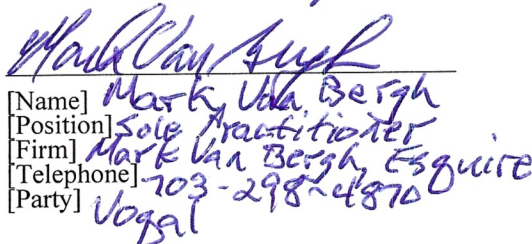 Mark Van Bergh
[Name] Mark Van Bergh
[Position] Sole Practitioner
[Firm] Mark Van Bergh, Esquire
[Telephone] 703-298-4870
[Party] Vogal